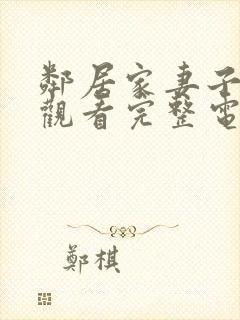 鄰居家妻子
觀看完整電
鄭棋